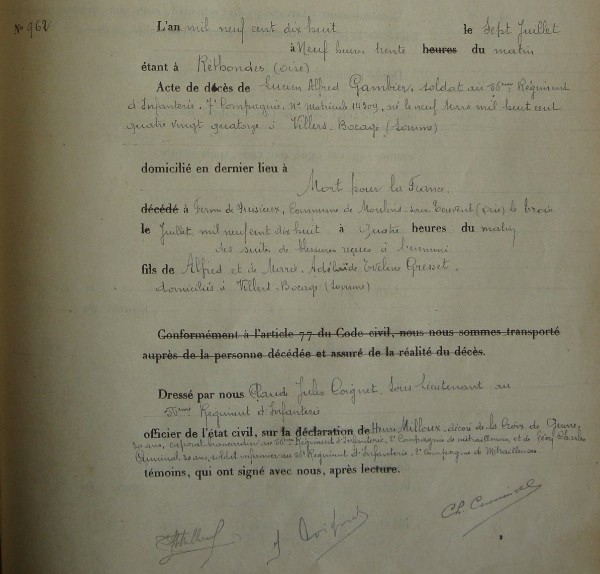 No 962
L'an mil neuf cent dix huit le Sept Juillet
à Neuf heures trente heures du matin
étant à Rethondes (Oise)
Acte de décès de Lucien Alfred Gambier, soldat au Régiment
d'Infanterie, 7e Compagnie, No Matricule 14309, né le neuf Mars mil huit cent
quatre vingt quatorze à Villers-Bocage (Somme)
domicilié en dernier lieu à
Mort pour la France.
décédé à Ferme de Puisieux, Commune de Moulins sous Touvent (Oise) le trois
le Juillet mil neuf cent dix huit à Quatre heures du matin
des suites de blessures reçues à l'ennemi
fils de Alfred et de Marie Adélaïde Eveline Gresset.
domiciliés à Villers-Bocage (Somme)
Conformément à l'article 77 du Code civil, nous nous sommes transporté
auprès de la personne décédée et assuré de la réalité du décès.
Dressé par nous Claude Jules Coignet, Sous Lieutenant au
Régiment d'Infanterie
officier de l'état civil, sur la déclaration de Henri Milloux, décoré de la Croix de Guerre,
ans, caporal brancardier au Régiment d'Infanterie, Compagnie de mitrailleuses, et de Charles
ans, soldat infirmier au Régiment d'Infanterie. Compagnie de Mitrailleuses
témoins, qui ont signé avec nous, après lecture.